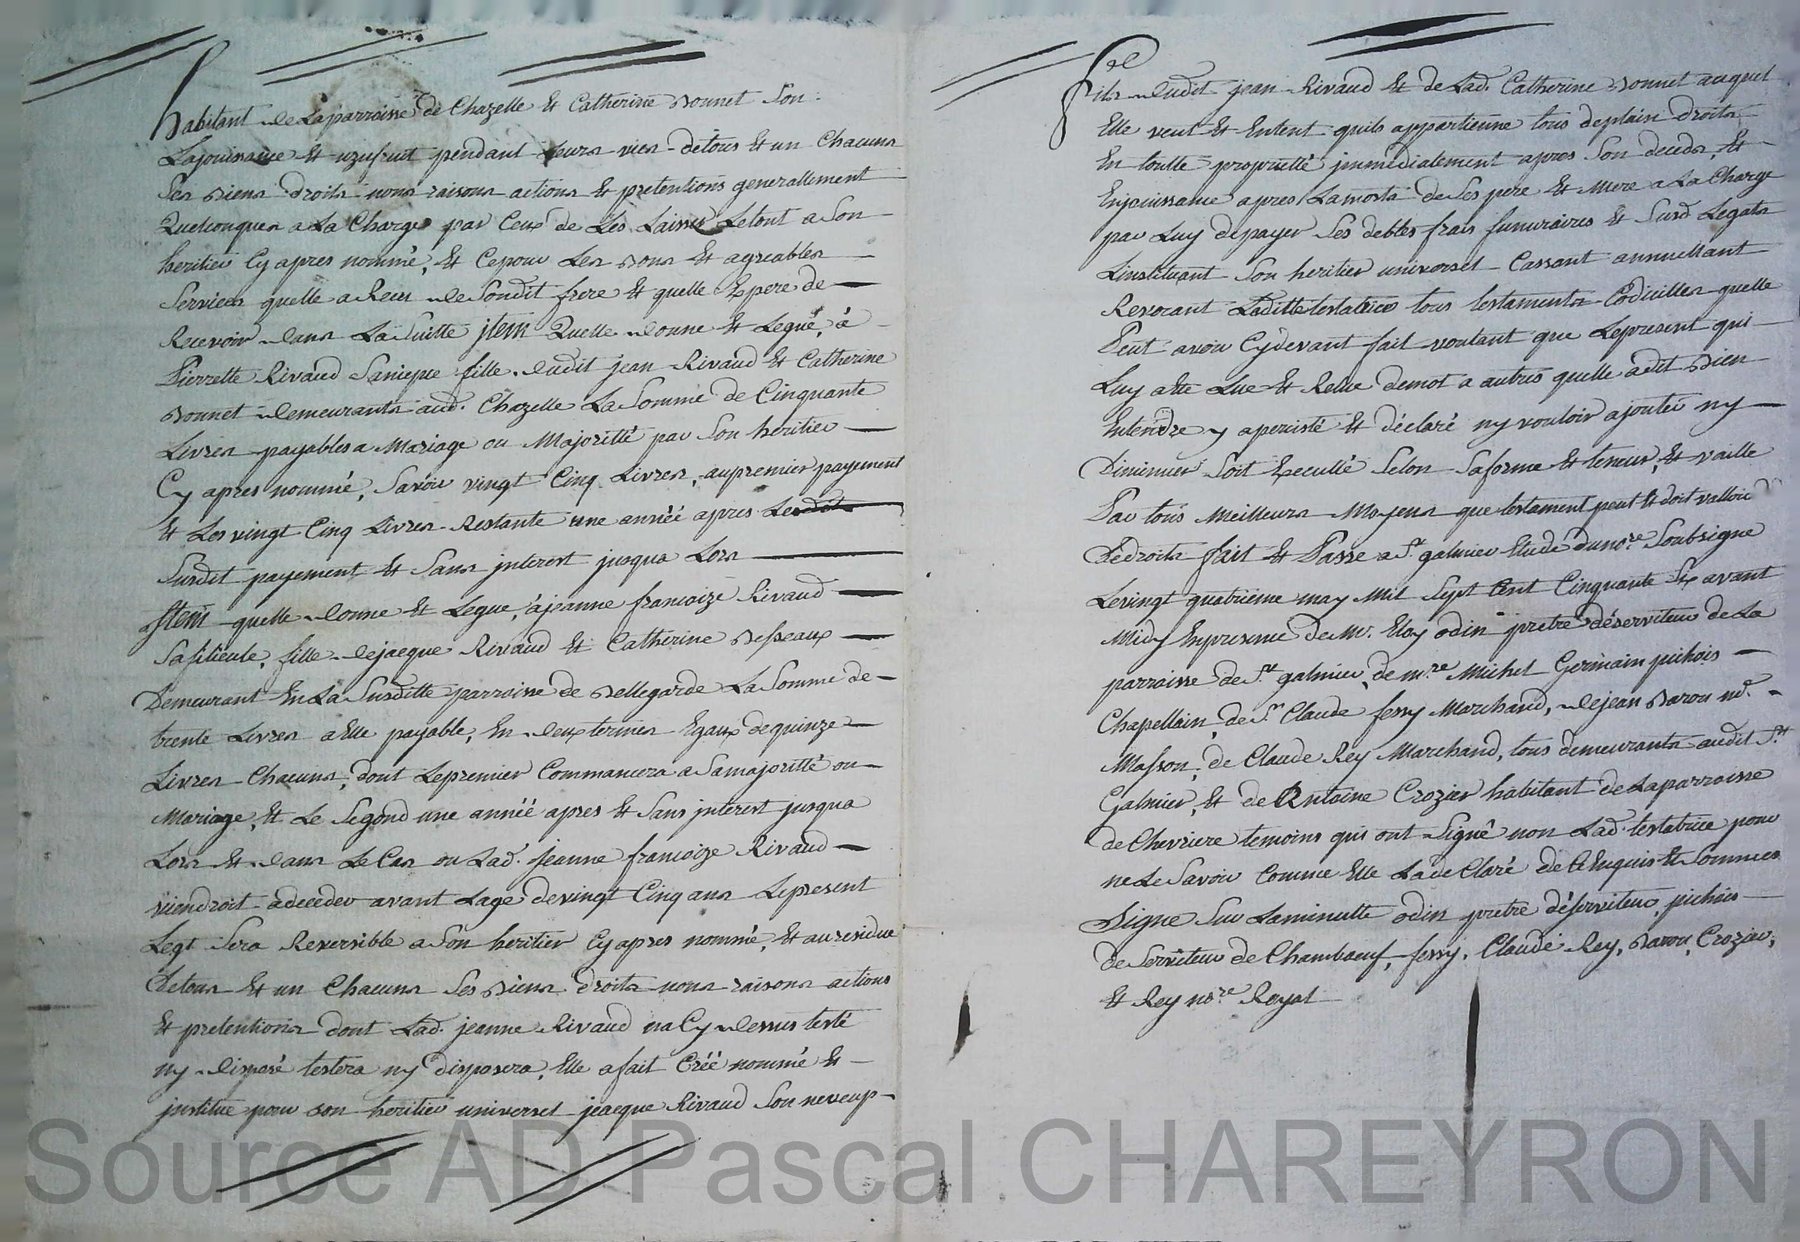 habitant de Laparroisse de Chazelle Et Catherine Bonnet Son
Lajouissance Et uzufruit pendant Leurs vies detous Et un Chacuns
Ses Biens droits noms raisons actions Et pretentions generallement
Quelconques a La Charge par Ceux de Les Laisser Letout a Son
heritier Cy apres nommé, Et Cepour Les Bons Et agreables
Services quelle a Receu de Sondit frere Et quelle Espere de
Recevoir dans La Suitte jtem Quelle donne Et Legue, à
Pierrette Rivaud Saniepce fille dudit jean Rivaud Et Catherine
Bonnet demeurants aud. Chazelle La Somme de Cinquante
Livres payables a Mariage ou Majoritté par Son heritier
Cy apres nommé, Savoir vingt Cinq Livres, aupremier payement
Et Les vingt Cinq Livres Restante une année apres
Susdit payement Et Sans jnterest jusqua Lors
jtem quelle donne Et Legue, àjeanne francoize Rivaud
Safilieule, fille dejacque Rivaud Et Catherine Besseaux
Demeurant En La Susditte parroisse de Bellegarde La Somme de
trente Livres a Elle payable, En deux termes Egaux dequinze
Livres Chacuns, dont Lepremier Commancera a Samajoritté ou
Mariage, Et Le Segond une année apres Et Sans jnterest jusqua
Lors Et dans Le Cas ou Lad. jeanne francoize Rivaud
viendroit adeceder avant Lage devingt Cinq ans Lepresent
Legt Sera Reversible a Son heritier Cy apres nommé, Et au residue
Detous Et un Chacuns Ses Biens droits noms raisons actions
Et pretentions dont Lad. jeanne Rivaud na Cy dessus testé
ny disposé testera ny disposera, Elle a fait Créé nommé Et
jnstitue pour Son heritier universel jeacque Rivaud Son neveup
fils dudit jean Rivaud Et de Lad. Catherine Bonnet auquel
Elle veut Et Entent quils appartienne tous deplain droits
En toutte proprietté jmmediatement apres Son decedz, Et
Enjouissance apres Lamorts de Ses pere Et Mere a La Charge
par Luy depayer Ses debtes frais funuraires Et Susd. Legats
Linstituant Son heritier universel Cassant annuellant
Revocant Laditte testatrice tous testaments Codicilles quelle
Peut avoir Cydevant fait voulant que Lepresent qui
Luy a Ete Lue Et Relue demot a autres quelle adit Bien
Entendre y apercisté Et déclaré ny vouloir ajouter ny
Diminuer Soit Executté Selon Saforme Et teneur, Et vaille
Par tous Meilleurs Moyens que testament peut Et doit valloir
Dedroits fait Et Passé a St. galmier Etude du nore. Soubsigne
Levingt quatrieme may Mil Sept Cent Cinquante Six avant
Midy Enpresence de Mr. Eloy odin pretre déserviteur de La
parroisse de St. galmier, de mre. Michel Germain pichois
Chapellain, de Sr. Claude ferry Marchand, dejean Barou md.
Masson, de Claude Rey Marchand, tous demeurants audit St.
Galmier, Et de Antoine Crozier habitant de Laparroisse
de Chevriere temoins qui ont Signé non Lad. testatrice pour
ne Le Savoir Comme Elle La de Claré de Ce Enquis Et Sommés
Signe Sur Laminutte odin pretre déserviteur, pichois
deserviteur de Chambaeuf, ferry, Claude Rey, Barou, Crozier,
Et Rey nore. Royal
Source AD Pascal CHAREYRON